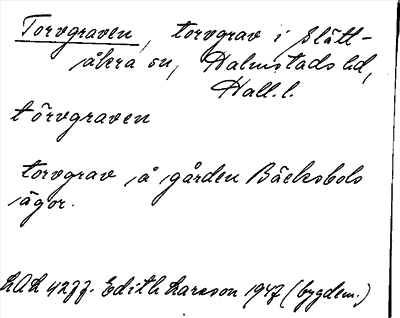 Torvgraven, torvgrav i Slätt-
åkra sn, Halmstads hd,
Hall. l.
törvgraven
torvgrav å gården Bäcksbols
ägor.
LAL 4277. Edith Larsson 1947 (bygdem.)